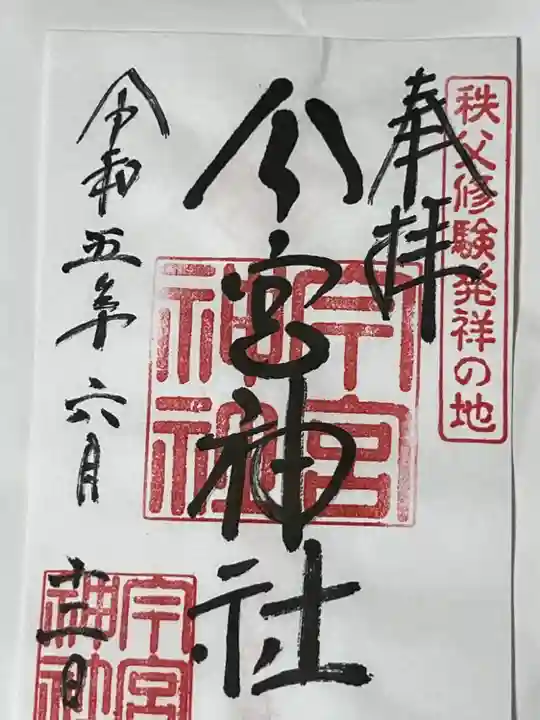 秩父修験発祥の地
奉拝
今宮神社
今宮神社
令和五年六月十二日